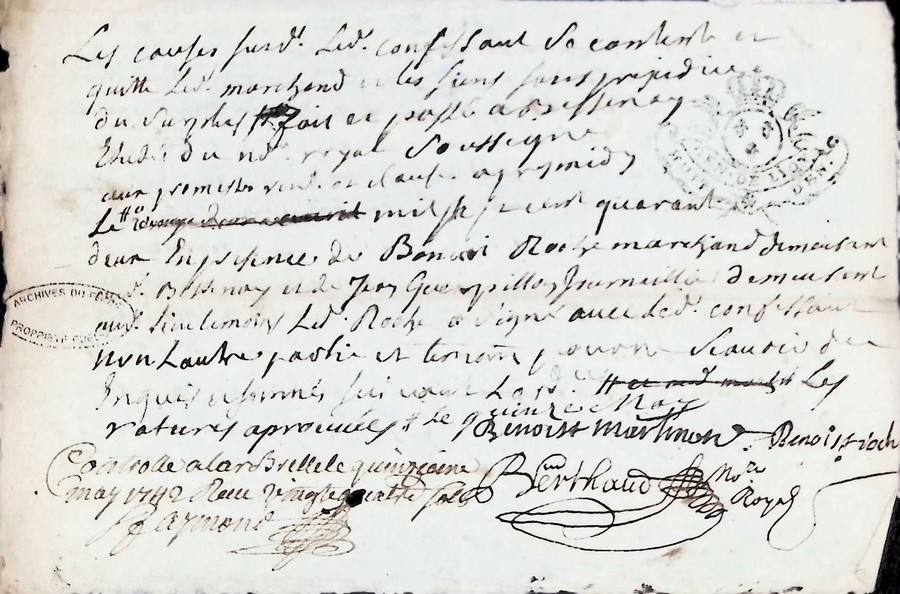 Les causes susd. Led. confessant se contente et
quitte led. marchand et les siens sans prejudice
du surplus fait et passé a Bessenay
Etude du no. royal soussigne
aux promesses rend. et clauses apresmidy
Le mil sept cent quarante
deux En presence de Benoist Roche marchand demeurant
Bessenay et de Jean demeurant
aud. lieu temoins Led. Roche a signé avec led. confessant
non Lautre partie et temoin pour ne scavoir de
Enquis et sommés Les
ratures aprouvées # Le quinze May
Benoist Martinon Benoist Roche
Controlle a Larbresle le quinzieme
may 1742 Receu vingt quatre sols
Raymond
Berthaud No.re Royal
ARCHIVES DU
PROPRIETE PUBLIQUE
GEN DE LION